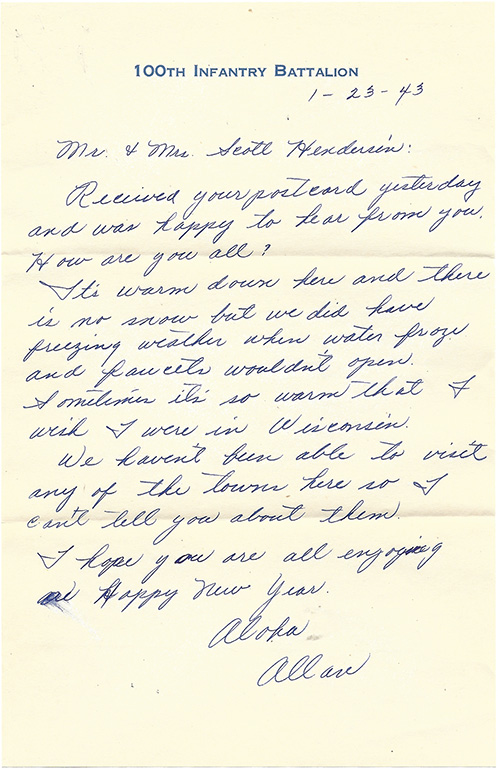 100TH INFANTRY BATTALION
1-23-43
Mr. & Mrs. Scott Henderson:
Received your postcard yesterday
and was happy to hear from you.
How are you all?
It's warm down here and there
is no snow but we did have
freezing weather when water froze
and faucets wouldn't open.
Sometimes it's so warm that I
wish I were in Wisconsin.
We haven't been able to visit
any of the towns here so I
can't tell you about them.
I hope you are all enjoying
a Happy New Year.
Aloha
Allan